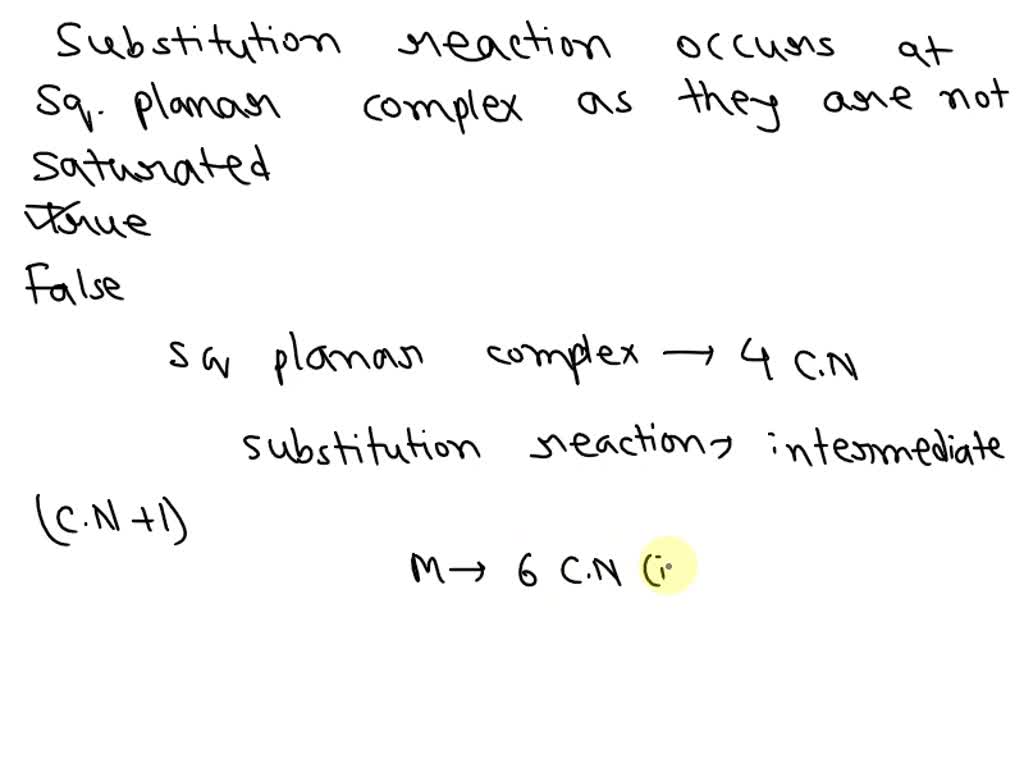 Substitution reaction occurs at
Sq. planar complex as they are not
saturated
True
False
sq planar complex → 4 C.N
substitution reaction → intermediate
(C.N +1)
M → 6 C.N (i